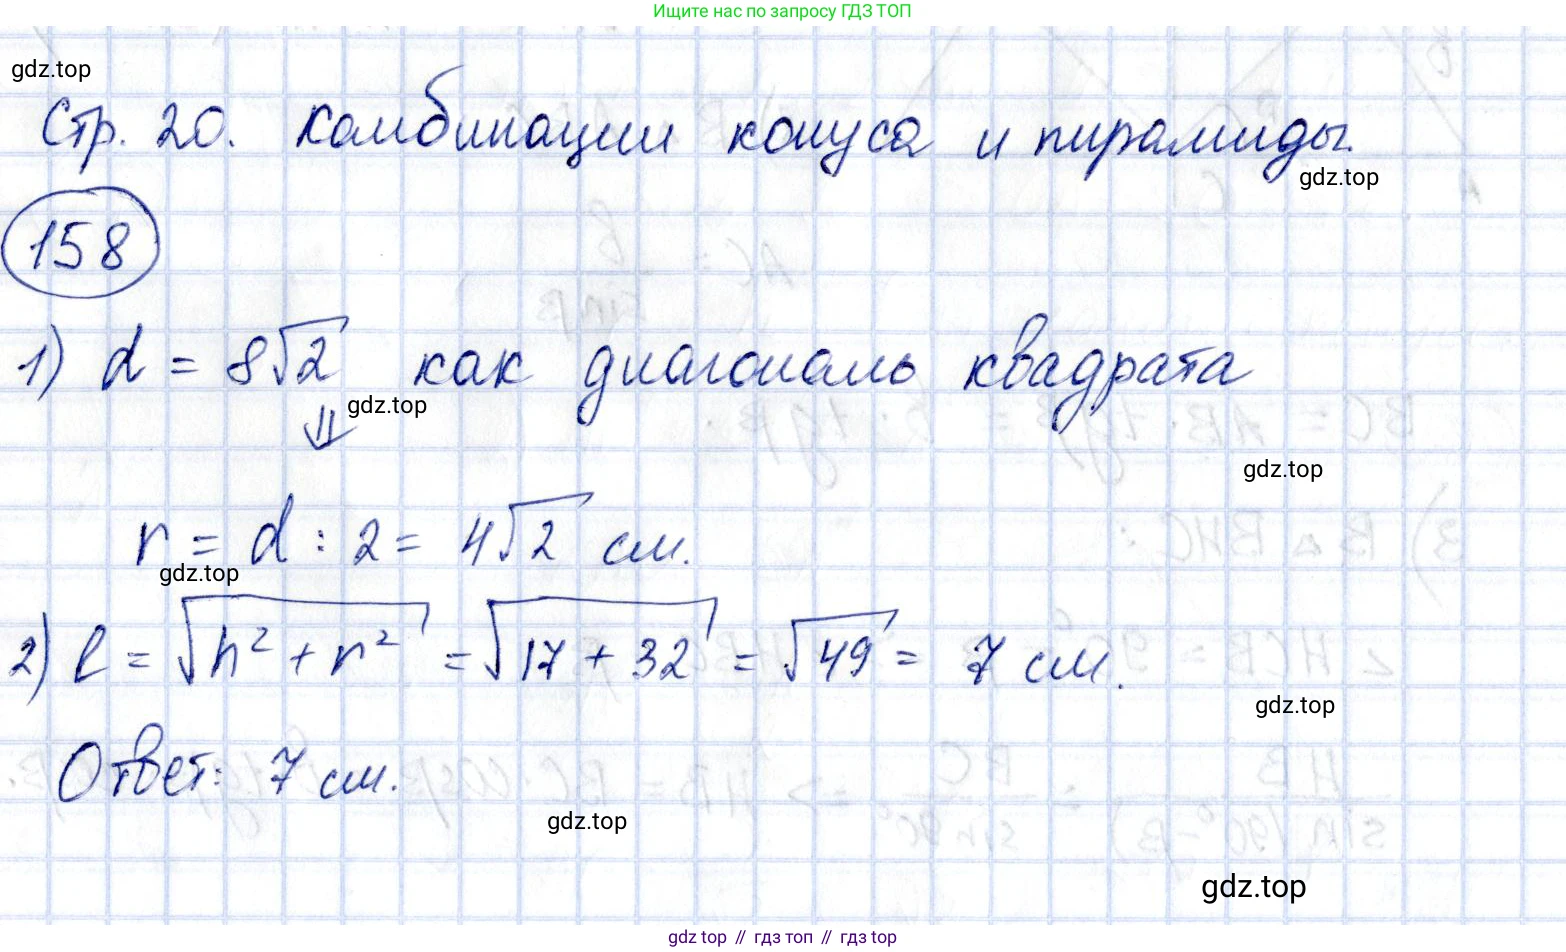 Ищите нас по запросу ГДЗ ТОП
gdz.top
Стр. 20. Комбинации конуса и пирамиды.
gdz.top
158
1) d = 8√2 как диагональ квадрата
⇓ gdz.top
gdz.top
r = d : 2 = 4√2 см.
gdz.top
2) l = √h² + r² = √17 + 32 = √49 = 7 см.
gdz.top
Ответ: 7 см.
gdz.top
gdz.top
gdz top // гдз топ // gdz top